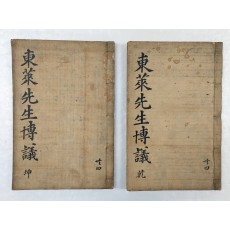 東萊先生博議
乾
十四
東萊先生博議
坤
十四